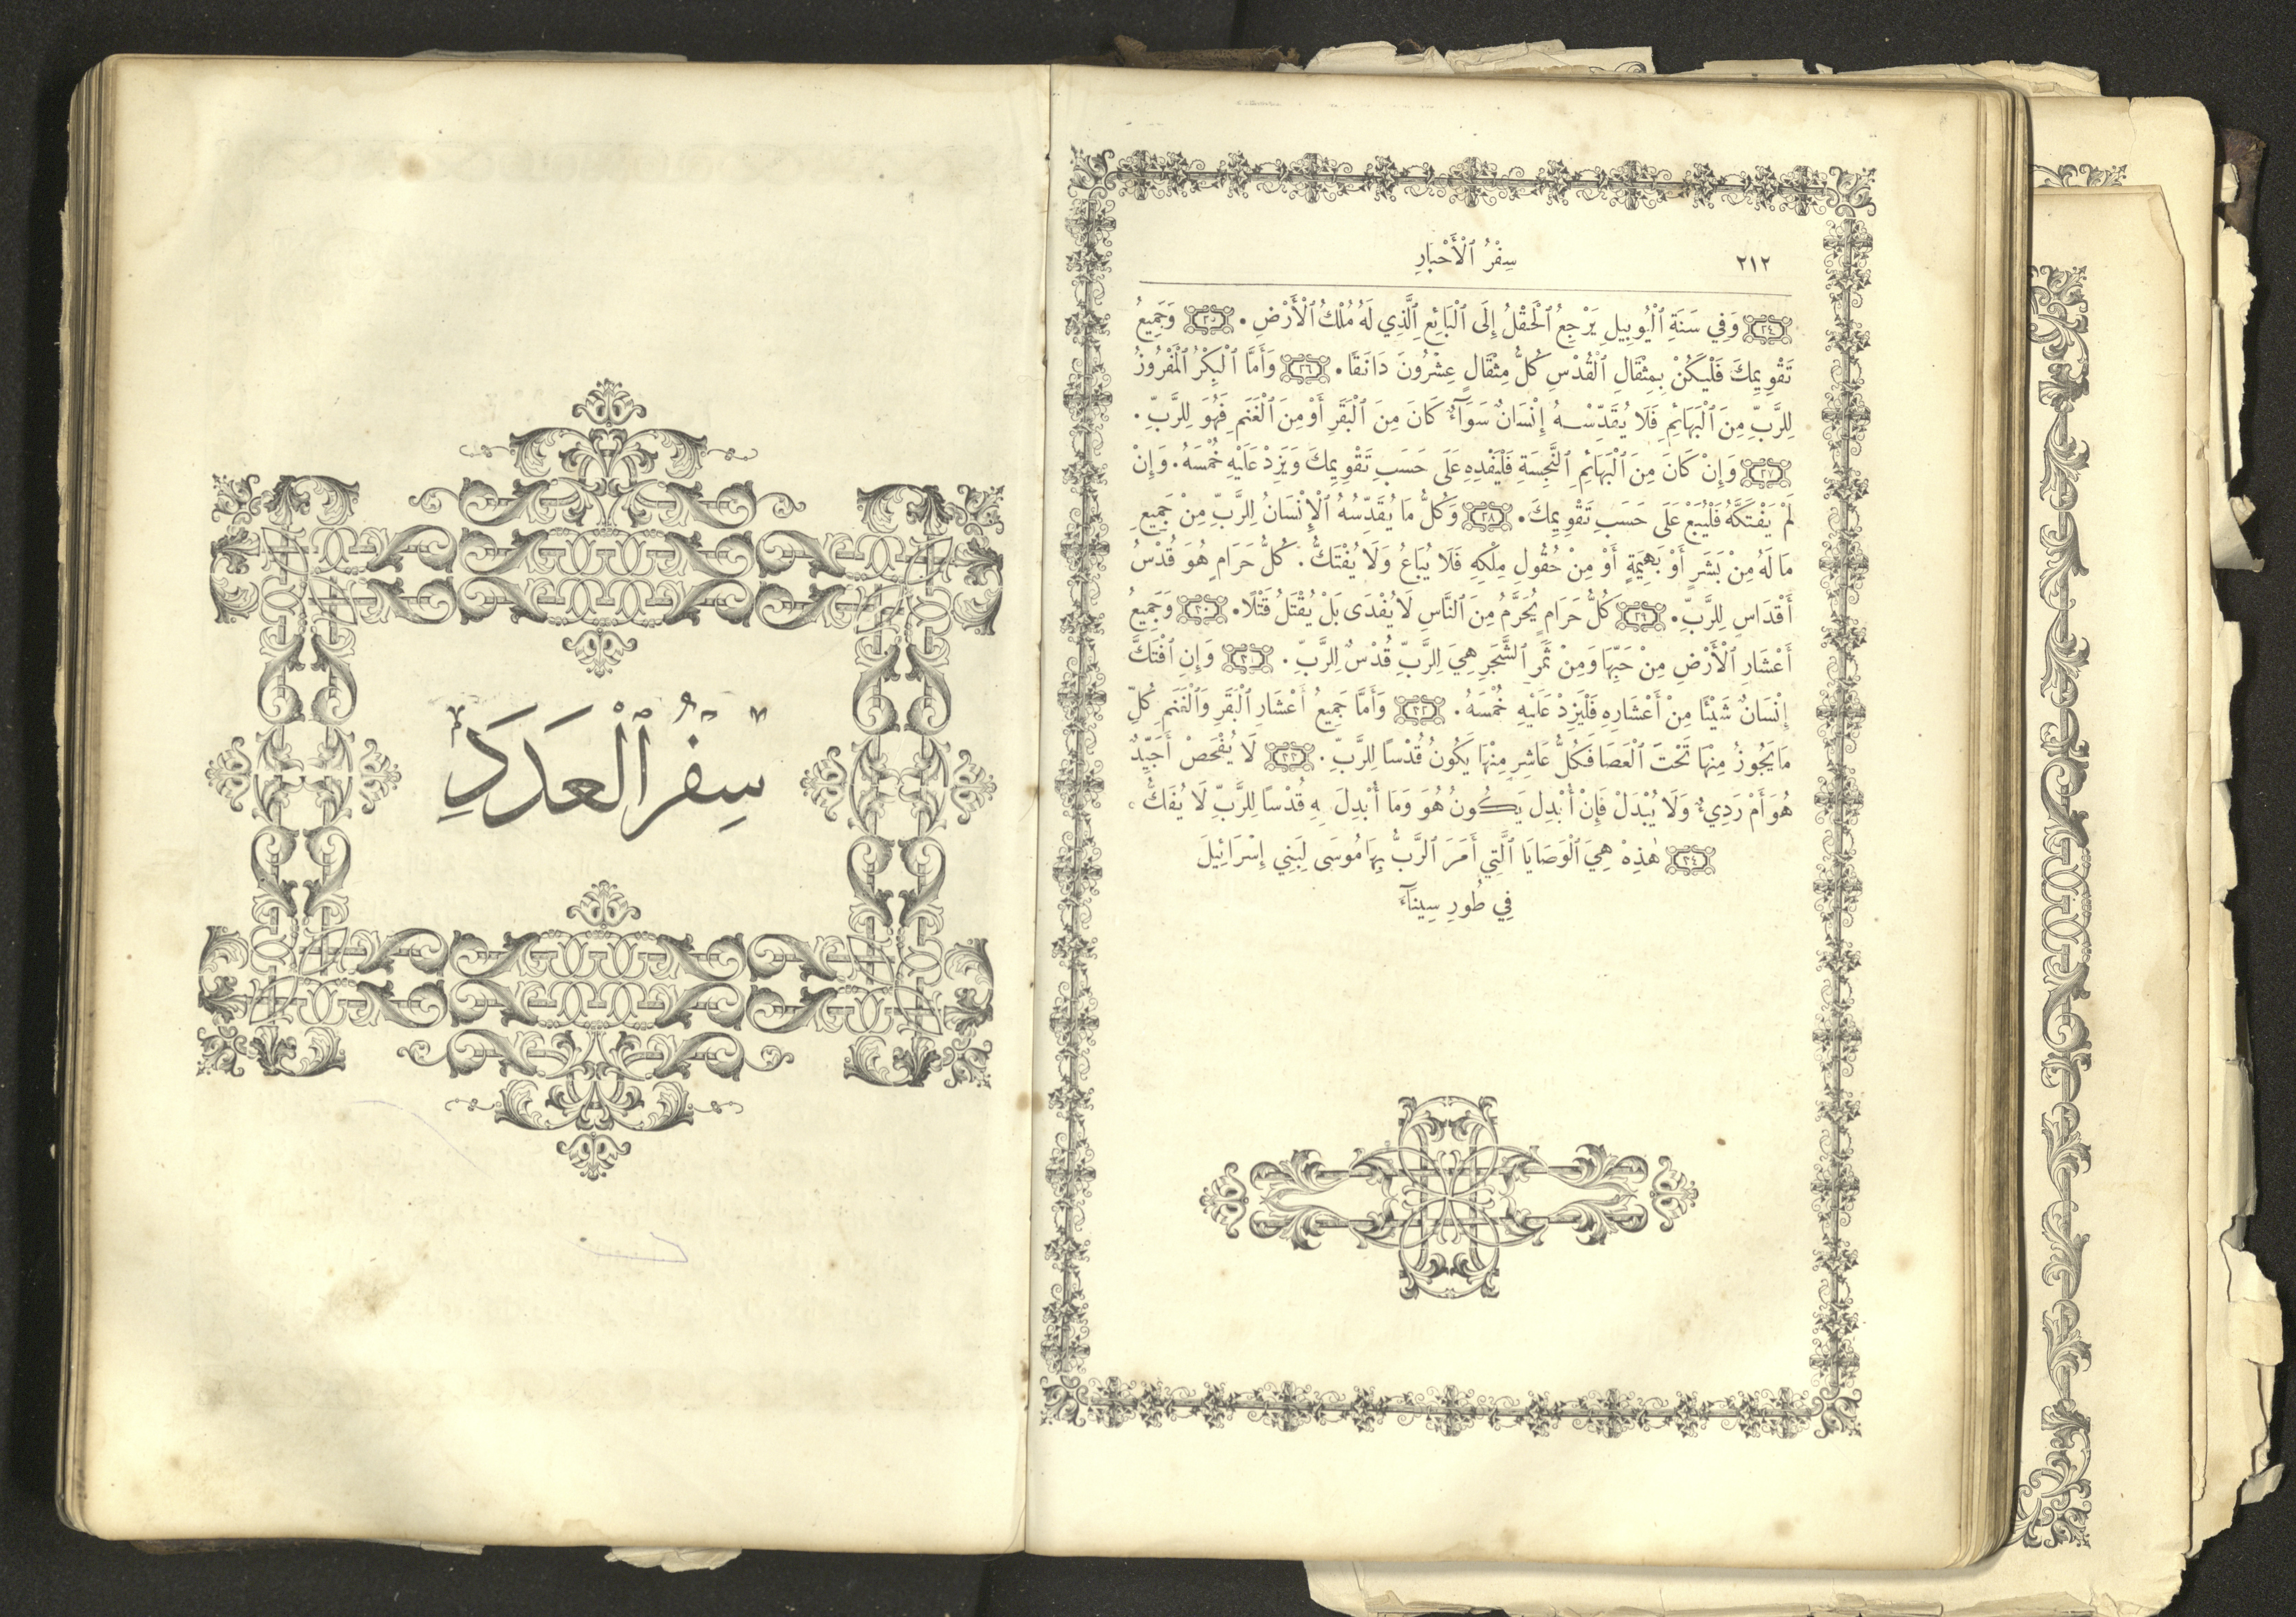 ٢١٢ سِفْرُ ٱلْأَحْبَارِ
٢٤ وَفِي سَنَةِ ٱلْيُوبِيلِ يَرْجِعُ ٱلْحَقْلُ إِلَى ٱلْبَائِعِ ٱلَّذِي لَهُ مُلْكُ ٱلْأَرْضِ. ٢٥ وَجَمِيعُ
تَقْوِيمِكَ فَلْيَكُنْ بِمِثْقَالِ ٱلْقُدْسِ كُلُّ مِثْقَالٍ عِشْرُونَ دَانَقًا. ٢٦ وَأَمَّا ٱلْبِكْرُ ٱلْمَفْرُوزُ
لِلرَّبِّ مِنَ ٱلْبَهَائِمِ فَلَا يُقَدِّسْهُ إِنْسَانٌ سَوَآءٌ كَانَ مِنَ ٱلْبَقَرِ أَوْ مِنَ ٱلْغَنَمِ فَهُوَ لِلرَّبِّ.
٢٧ وَإِنْ كَانَ مِنَ ٱلْبَهَائِمِ ٱلنَّجِسَةِ فَلْيَفْدِهِ عَلَى حَسَبِ تَقْوِيمِكَ وَيَزِدْ عَلَيْهِ خُمْسَهُ. وَإِنْ
لَمْ يَفْتَكَّهُ فَلْيُبَعْ عَلَى حَسَبِ تَقْوِيمِكَ. ٢٨ وَكُلُّ مَا يُقَدِّسُهُ ٱلْإِنْسَانُ لِلرَّبِّ مِنْ جَمِيعِ
مَا لَهُ مِنْ بَشَرٍ أَوْ بَهِيمَةٍ أَوْ مِنْ حُقُولِ مِلْكِهِ فَلَا يُبَاعُ وَلَا يُفْتَكُّ. كُلُّ حَرَامٍ هُوَ قُدْسُ
أَقْدَاسٍ لِلرَّبِّ. ٢٩ كُلُّ حَرَامٍ يُحَرَّمُ مِنَ ٱلنَّاسِ لَا يُفْدَى بَلْ يُقْتَلُ قَتْلًا. ٣٠ وَجَمِيعُ
أَعْشَارِ ٱلْأَرْضِ مِنْ حَبِّهَا وَمِنْ ثَمَرِ ٱلشَّجَرِ هِيَ لِلرَّبِّ قُدْسٌ لِلرَّبِّ. ٣١ وَإِنِ ٱفْتَكَّ
إِنْسَانٌ شَيْئًا مِنْ أَعْشَارِهِ فَلْيَزِدْ عَلَيْهِ خُمْسَهُ. ٣٢ وَأَمَّا جَمِيعُ أَعْشَارِ ٱلْبَقَرِ وَٱلْغَنَمِ كُلِّ
مَا يَجُوزُ مِنْهَا تَحْتَ ٱلْعَصَا فَكُلُّ عَاشِرٍ مِنْهَا يَكُونُ قُدْسًا لِلرَّبِّ. ٣٣ لَا يُفْحَصْ أَجَيِّدٌ
هُوَ أَمْ رَدِيءٌ وَلَا يُبْدَلْ فَإِنْ أُبْدِلَ يَكُونُ هُوَ وَمَا أُبْدِلَ بِهِ قُدْسًا لِلرَّبِّ لَا يُفَكُّ.
٣٤ هٰذِهْ هِيَ ٱلْوَصَايَا ٱلَّتِي أَمَرَ ٱلرَّبُّ بِهَا مُوسَى لِبَنِي إِسْرَائِيلَ
فِي طُورِ سِينَآءَ
سِفْرُ ٱلْعَدَدِ